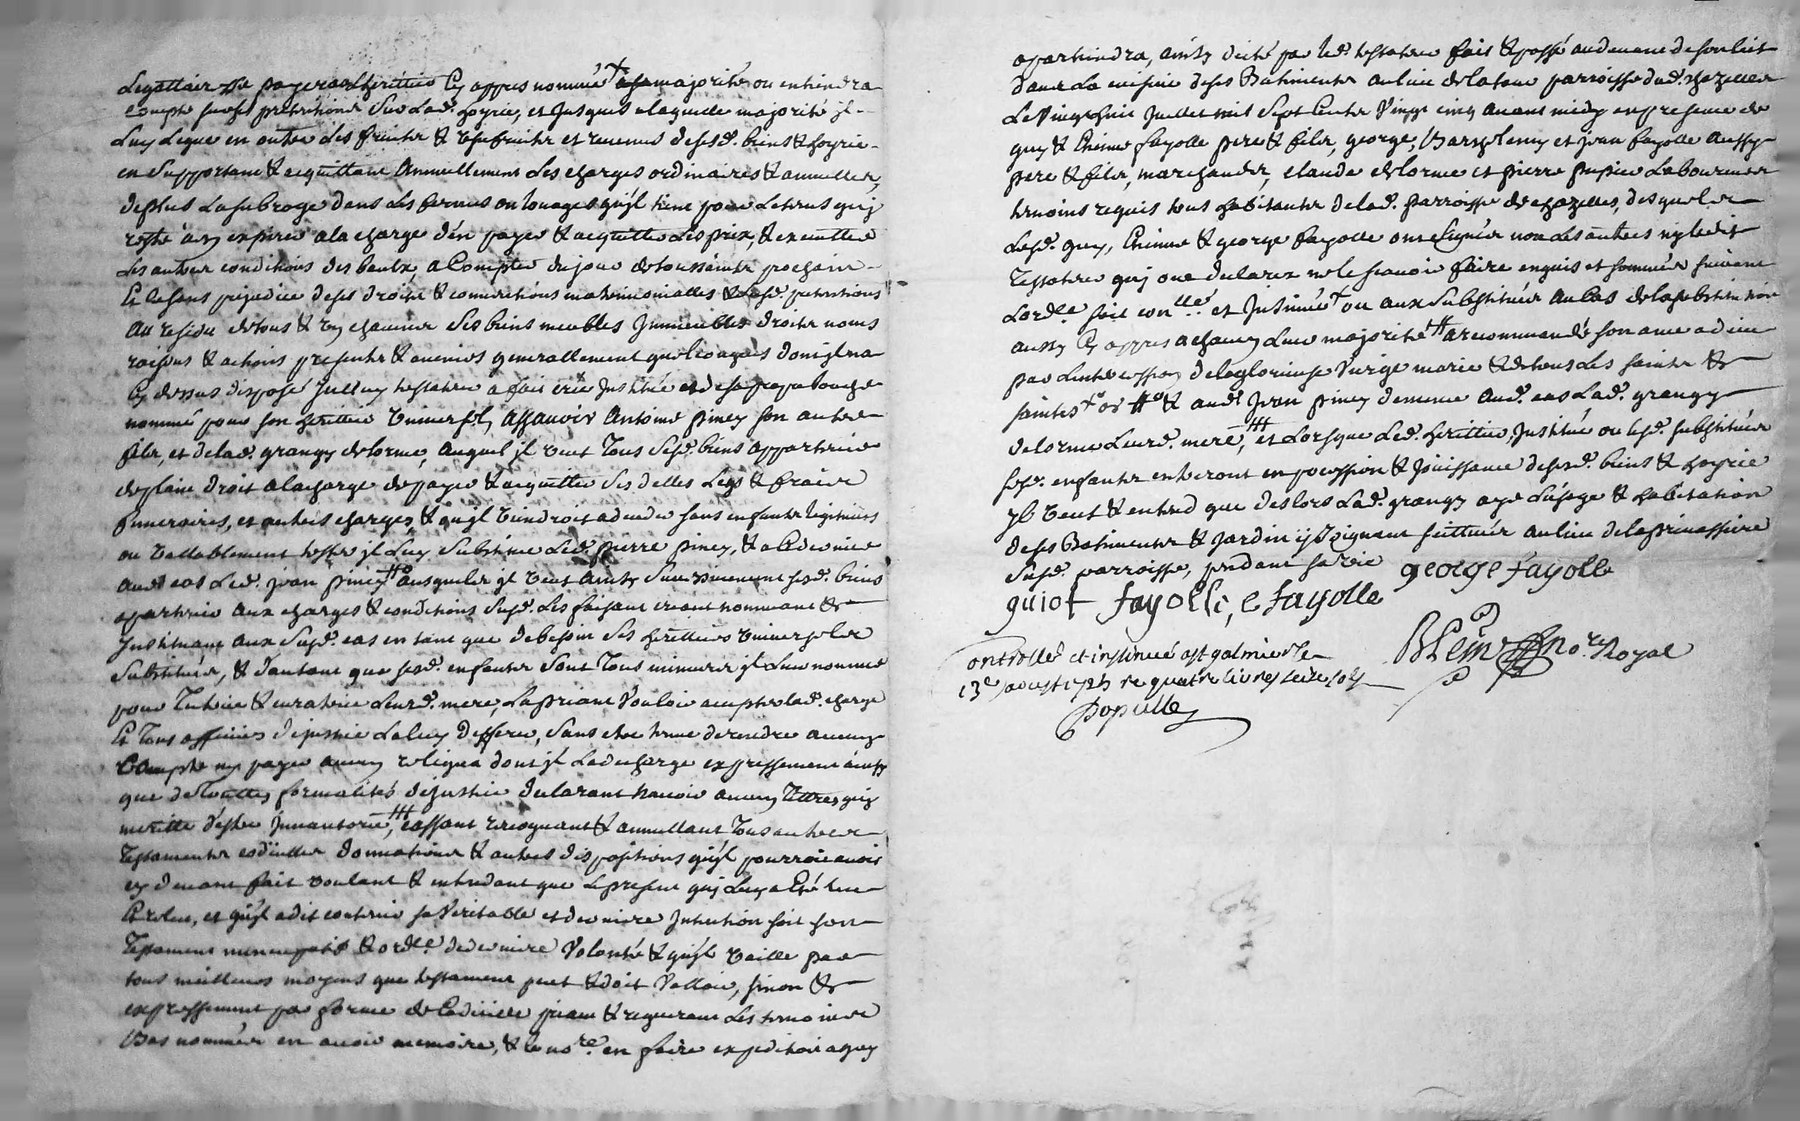 Legattaire de payer a lherittier Cy appres nommé + a sa majorité ou entiendra
compte sur ses pretentions sur lad. hoyrie, et jusques a laquelle majorité jl
Luy Legue en outre Les fruits & usufruits et revenus de sesd. biens & hoyrie
en supportant & acquittant annuellement Les charges ordinaires & annuelles,
de plus La subroge dans Les fermes ou louages qu'jl tient pour Le temps quj
reste a en expirer a la charge d'en payer & acquitter Les prix, & executter
Les autres conditions des baulx, a Compter du jour de toussaints prochain
Et le sans prejudice de ses droits & conventions matrimonialles & sesd. pretentions
Au residu de tous & un chacuns ses biens meubles Jmmeubles droits noms
raisons & actions presents & avenirs generallement quelconques dont jl na
Cy dessus disposé Jcelluy testateur a fait creé Jnstitué et de sa propre bouche
nommé pour son heritier Universel, assavoir Antoine Piney son autre
fils, et de lad. grangy delorme, auquel jl veut Tous sesd. biens appartenir
de plain droit a la charge de payer & acquitter ses dettes Legs & fraix
funeraires, et autres charges, & qu'jl viendroit a deceder sans enfants legitimes
ou vallablement tester jl Luy substitue Led. pierre Piney, & a ce dernier
aud. cas Led. jean Piney # ausquels jl veut ainsy sesd. biens
apartenir aux charges & conditions susd. Les faisant creant nommant &
Jnstituant aux susd. cas en tant que de besoin ses herittiers Universels
substitués, & d'autant que sesd. enfants sont Tous mineurs jl Leur nomme
pour Tutrice & curatrice Leurd. mere, La priant Vouloir accepter lad. charge
Et Tous officiers de justice La luy defferer, sans etre tenue de rendre aucung
Compte ny payer aucun reliqua dont jl La decharge expressement ainsy
que de touttes formalités de justice declarant n'avoir aucuns tittres quj
meritte d'estre jnvantorié, ### cassant revoquant & annullant Tous autres
Testaments codicilles donnations & autres dispositions qu'jl pourroit avoir
cy devant fait voulant & entendant que Le present quj Luy a Eté leu
Et releu, et qu'jl a dit contenir sa Veritable et derniere Jntention soit son
Testament nuncupatif & ordce. de derniere Volonté & qu'jl vaille par
tous meilleurs moyens que testament peut & doit valloir, sinon &
expressement par forme de Codicille priant & requerant Les temoins
Bas nommés en avoir memoire, & le nore. en faire expedition a quy
apartiendra, ainsy dicté par led. testateur fait & passé au devant de son lict
dans La cuisine de ses Batiments au lieu de la tour parroisse dud. chazelles
Le Vingt huit Juillet mil Sept Cents Vingt cinq avant midy en presence de
guy & Etienne fayolle pere & fils, george, Barthelemy et jean fayolle aussy
pere & fils, marchands, claude delorme et pierre Pupier Laboureurs
temoins requis tous habitants de lad. parroisse de chazelles, desquels
Lesd. guy, Etienne & george fayolle ont signés non Les autres ny ledit
testateur quj ont declarez ne le scavoir faire enquis et sommés suivant
Lordce. soit conlle. et jnsinué + ou aux substitués au cas de la substitution
aussy Cy appres a chacun Leur majorité # a recommandé son ame a dieu
par L'intercession de la glorieuse Vierge marie & de tous Les saints &
saintes # & aud. Jean Piney de meme aud. cas Lad. grangy
delorme Leurd. mere ### et Lorsque Led. herittier Jnstitué ou lesd. substitués
sesd. enfants entreront en possession & jouissance de sesd. biens & hoyrie
jl veut & entend que des lors Lad. grangy aye L'usage & habitation
de ses Batiments & jardin y joignant scittués au lieu de
susd. parroisse, pendant sa vie
george fayolle
guiot fayolle, e fayolle
Blein nore. Royal
ontrollé et insinué a st galmier le
13e aoust 1725 re quatre livres seize sols
Populle